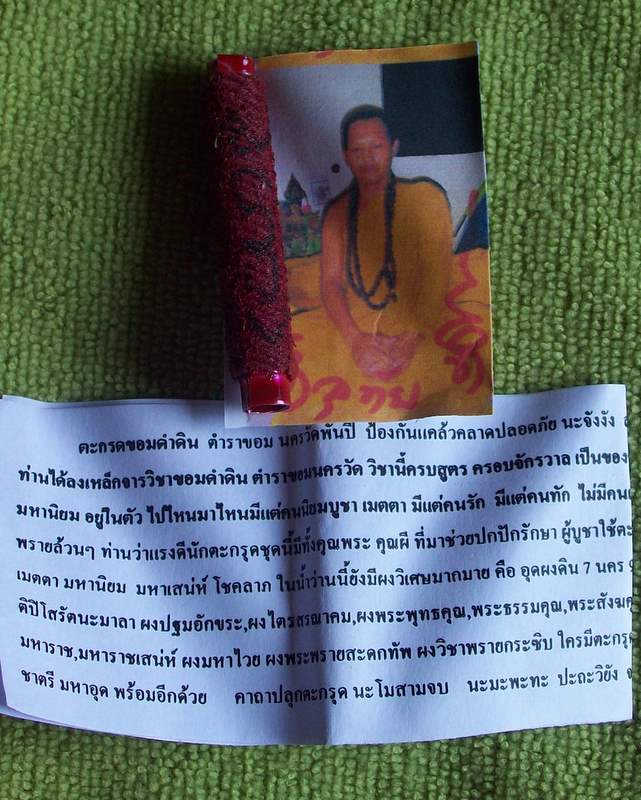 ตะกรุดขอมดำดิน ตำราขอม นครวัดพันปี ป้องกันแคล้วคลาดปลอดภัย นะจังงัง
ท่านได้ลงเหล็กจารวิชาขอมดำดิน ตำราขอมนครวัด วิชานี้ครบสูตร ครอบจักรวาล เป็นของ
มหานิยม อยู่ในตัว ไปไหนมาไหนมีแต่คนนิยมบูชา เมตตา มีแต่คนรัก มีแต่คนทัก ไม่มีคน
พรายล้วนๆ ท่านว่าแรงดีนักตะกรุดชุดนี้มีทั้งคุณพระ คุณผี ที่มาช่วยปกปักรักษา ผู้บูชาใช้ตะ
เมตตา มหานิยม มหาเสน่ห์ โชคลาภ ในน้ำว่านนี้ยังมีผงวิเศษมากมาย คือ อุดผงดิน 7 นคร
ติปิโสรัตนะมาลา ผงปฐมอักขระ,ผงไตรสรณาคม,ผงพระพุทธคุณ,พระธรรมคุณ,พระสังฆ
มหาราช,มหาราชเสน่ห์ ผงมหาไวย ผงพระพรายสะดกทัพ ผงวิชาพรายกระซิบ ใครมีตะกรุ
ชาตรี มหาอุด พร้อมอีกด้วย คาถาปลุกตะกรุด นะโมสามจบ นะมะพะทะ ปะถะวิยัง